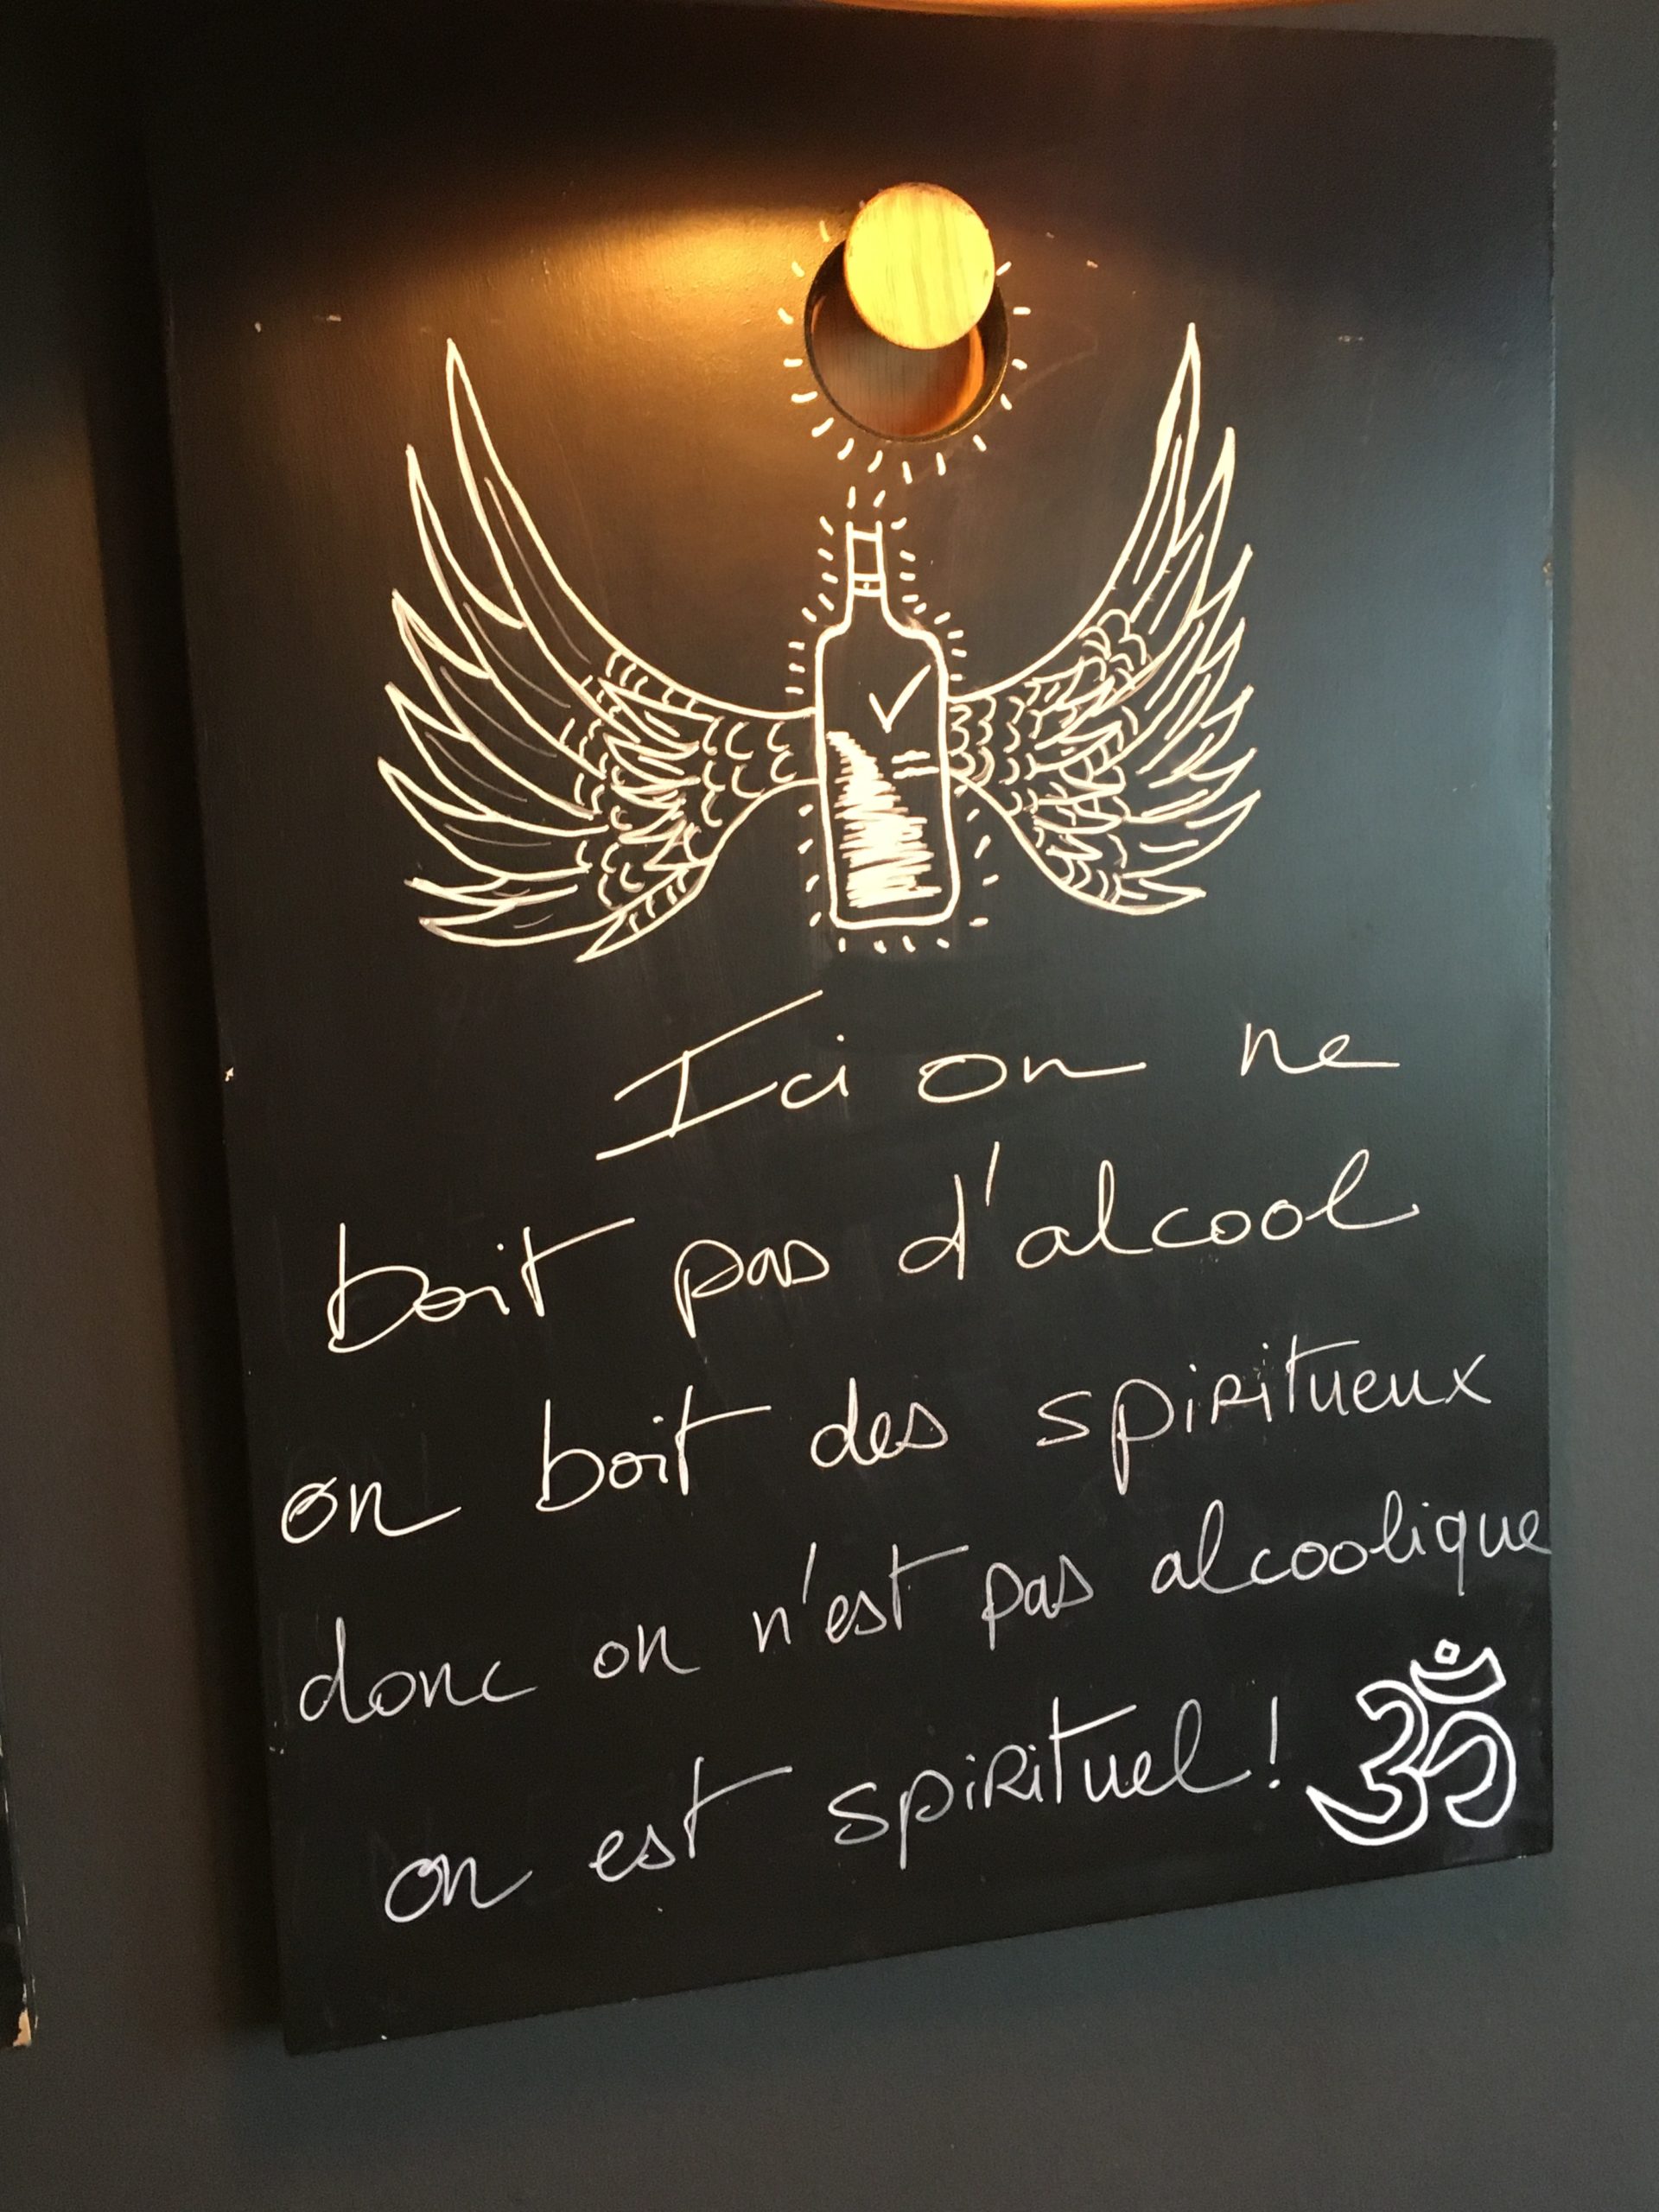 Ici on ne
boit pas d'alcool
on boit des spiritueux
donc on n'est pas alcoolique
on est spirituel ! ॐ